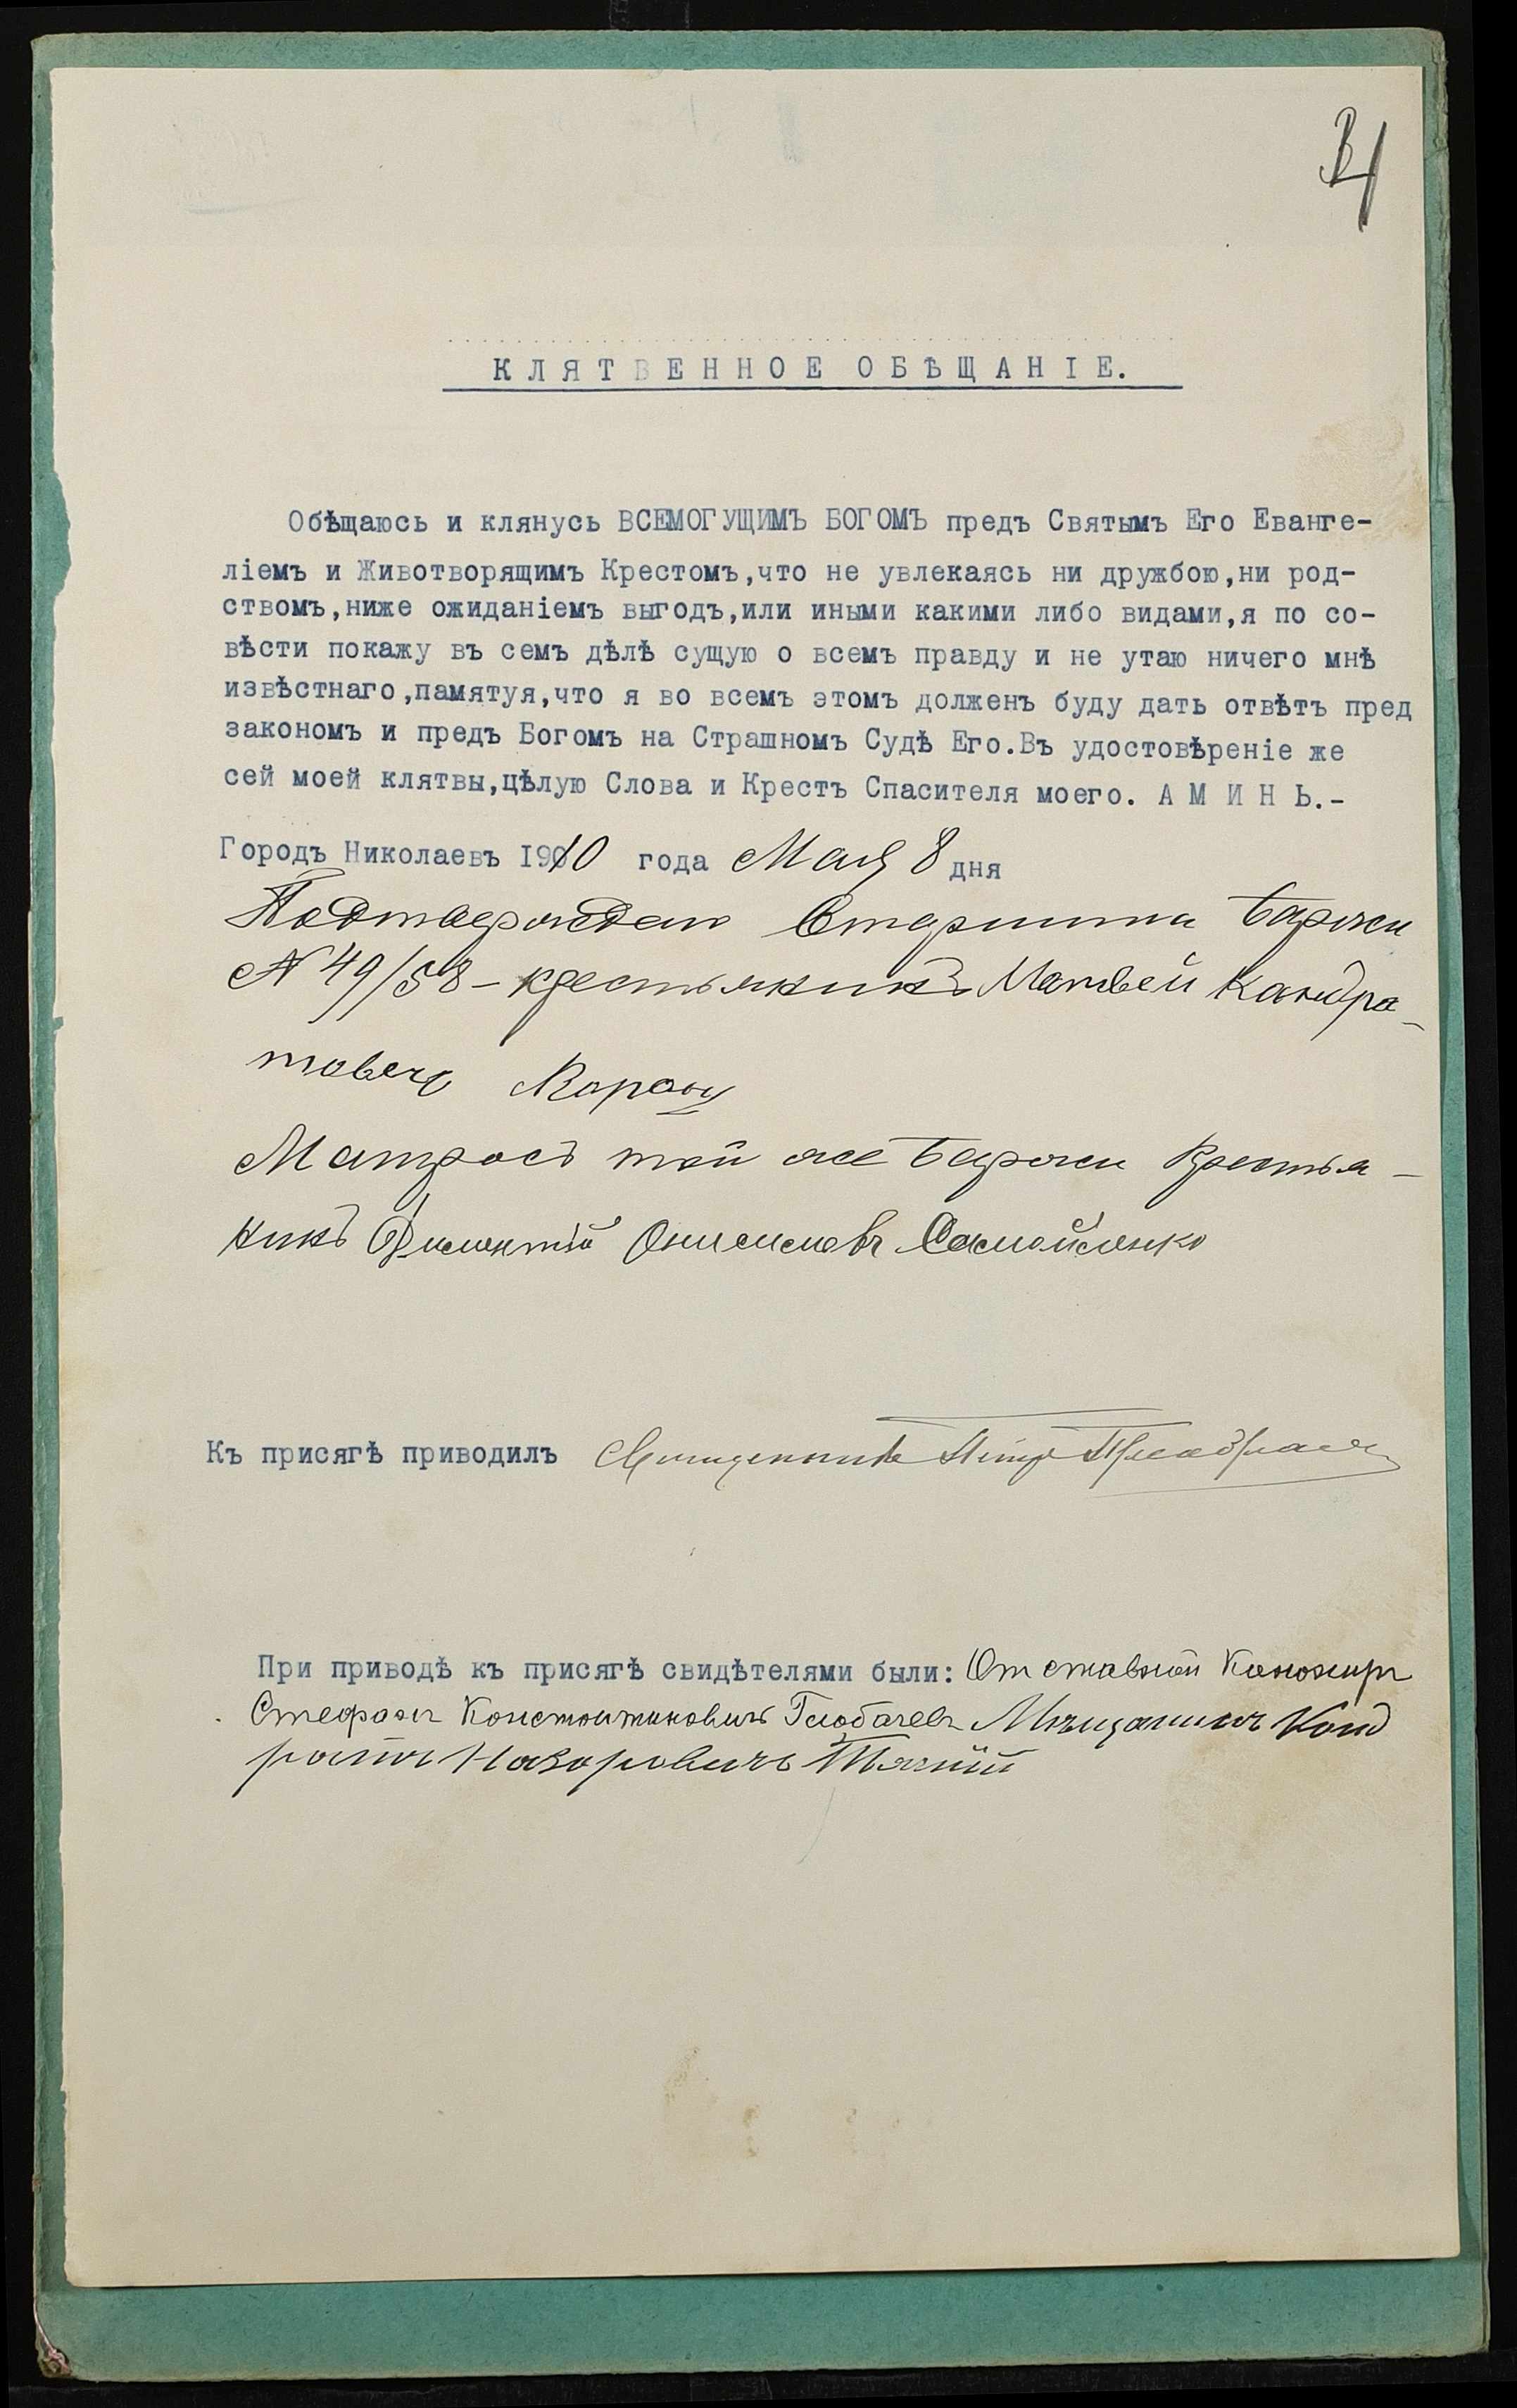 КЛЯТВЕННОЕ ОБѢЩАНІЕ.
Обѣщаюсь и клянусь ВСЕМОГУЩИМЪ БОГОМЪ предъ Святымъ Его Еванге-
ліемъ и Животворящимъ Крестомъ,что не увлекаясь ни дружбою,ни род-
ствомъ,ниже ожиданіемъ выгодъ,или иными какими либо видами,я по со-
вѣсти покажу въ семъ дѣлѣ сущую о всемъ правду и не утаю ничего мнѣ
извѣстнаго,памятуя,что я во всемъ этомъ долженъ буду дать отвѣтъ пред
закономъ и предъ Богомъ на Страшномъ Судѣ Его.Въ удостовѣреніе же
сей моей клятвы,цѣлую Слова и Крестъ Спасителя моего. А М И Н Ь.-
Городъ Николаевъ 1910 года Мая 8 дня
Подтверждаю Старшина Баржи
№ 49/58 - крестьянинъ Матвей Кандра-
товеч
Матросъ той же Баржи Крестья-
нинъ Онисимовъ Самойленко
Къ присягѣ приводилъ Священникъ Петръ
При приводѣ къ присягѣ свидѣтелями были: Отставной Канониръ
Стефанъ Константиновичъ Глобачевъ Мѣщанинъ Конд
ратъ Назаровичъ